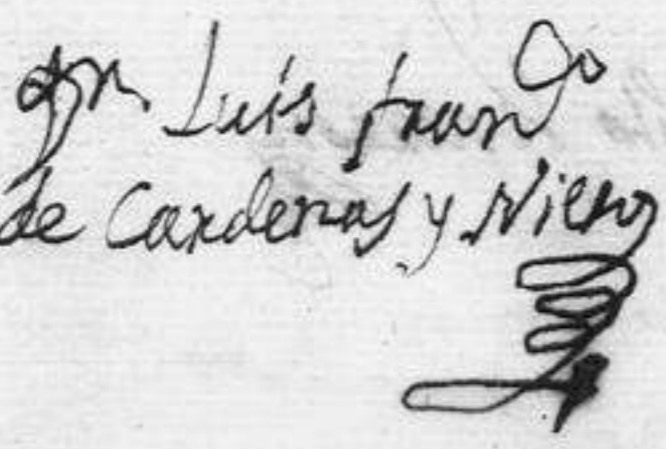 Dn Luis Franco
de Cardenas y Nieto